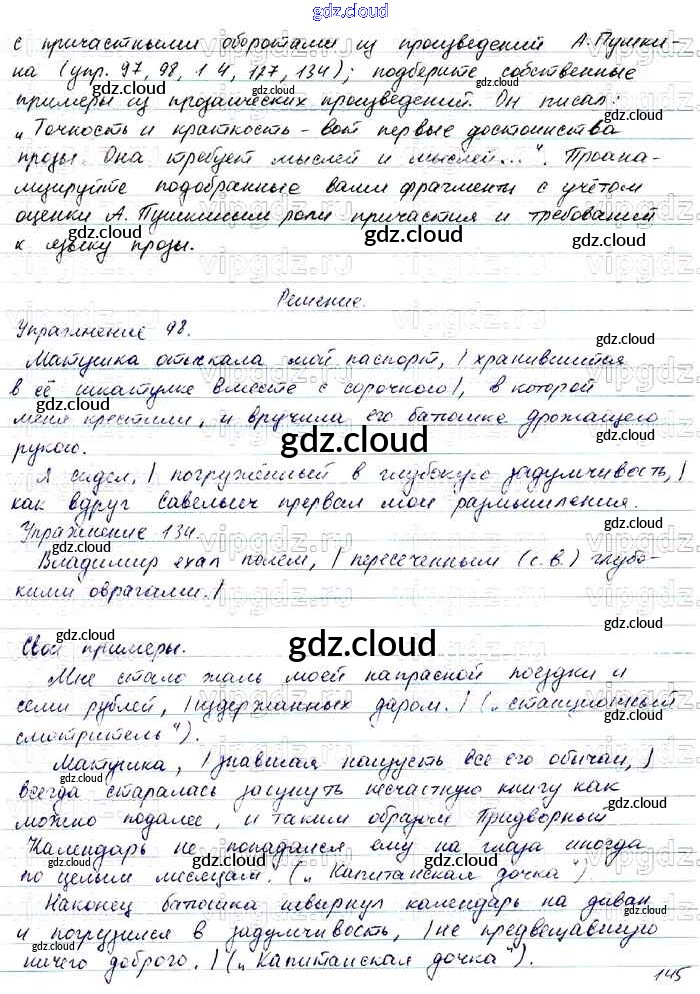 gdz.cloud
с причастными оборотами из произведений А. Пушки-
на (упр. 97, 98, 1 4, 127, 134); подберите собственные
примеры из прозаических произведений. Он писал:
„Точность и краткость – вот первые достоинства
прозы. Она требует мыслей и мыслей...“. Проана-
лизируйте подобранные вами фрагменты с учётом
оценки А. Пушкиным роли причастия и требований
к языку прозы.
Решение.
Упражнение 98.
Матушка отыскала мой паспорт, | хранившийся
в её шкатулке вместе с сорочкою |, в которой
меня крестили, и вручила его батюшке дрожащею
рукою.
Я сидел, | погружённый в глубокую задумчивость, |
как вдруг Савельич прервал мои размышления.
Упражнение 134.
Владимир ехал полем, | пересеченным (с.в.) глубо-
кими оврагами. |
Свои примеры.
Мне стало жаль моей напрасной поездки и
семи рублей, | издержанных даром. | („Станционный
смотритель“).
Матушка, | знавшая наизусть все его обычаи, |
всегда старалась засунуть несчастную книгу как
можно подалее, и таким образом Придворный
Календарь не попадался ему на глаза иногда
по целым месяцам. („Капитанская дочка“).
Наконец батюшка швырнул календарь на диван
и погрузился в задумчивость, | не предвещавшую
ничего доброго. | („Капитанская дочка“).
145